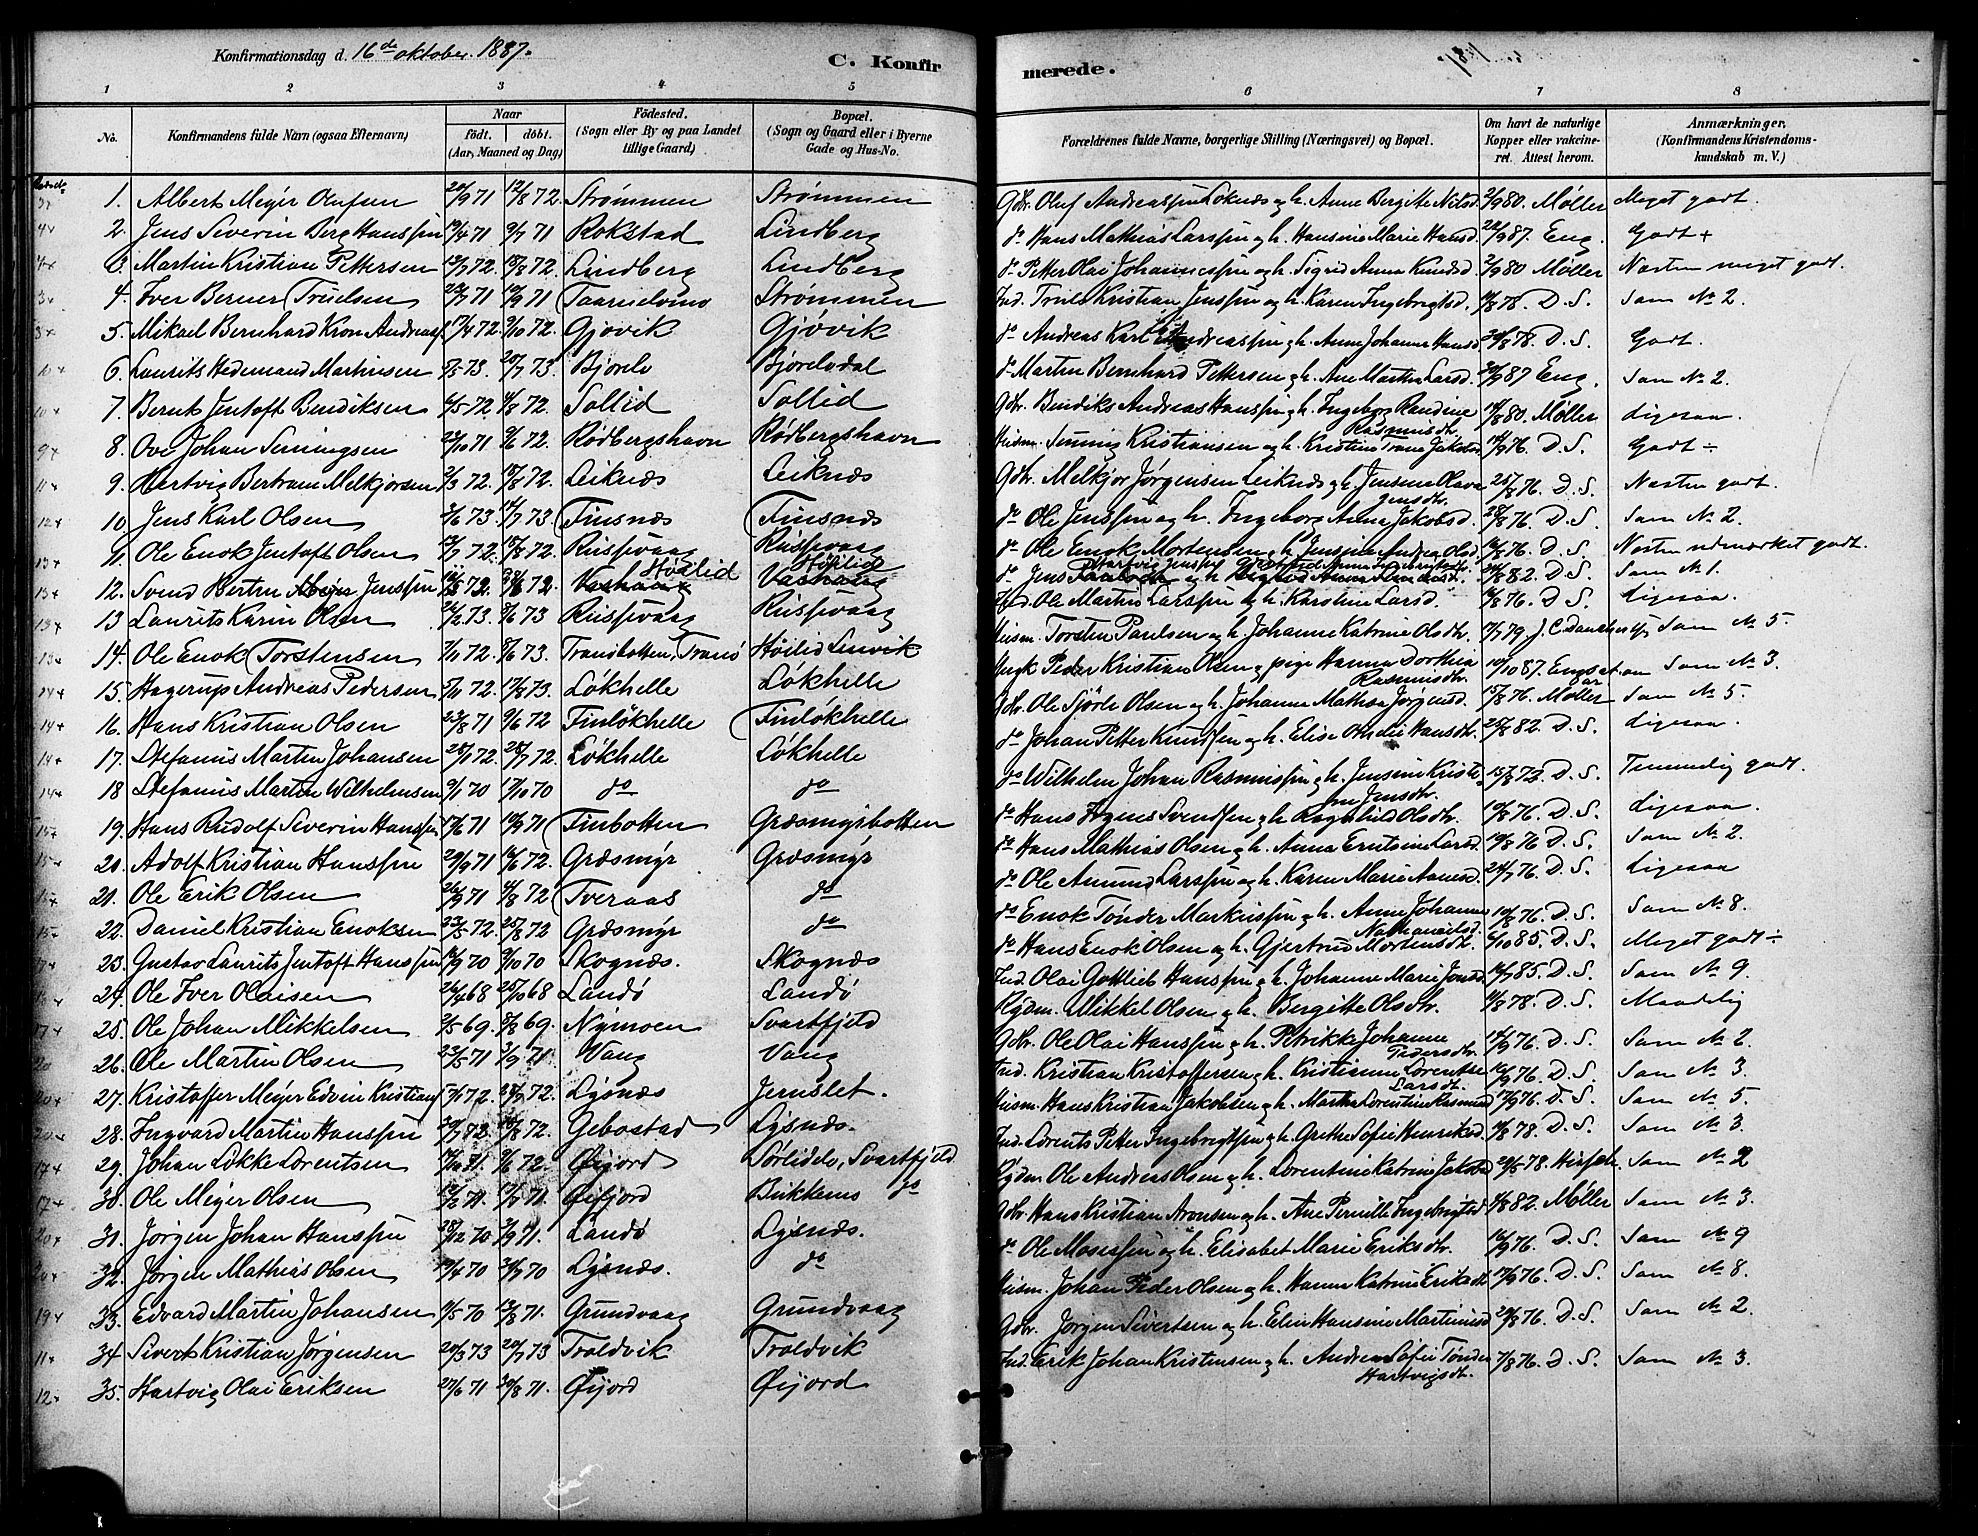 Konfirmationsdag d. 16de oktober 1887.
C. Konfirmerede.
1 2 3 4 5 6 7 8
No. Konfirmandens fulde Navn (ogsaa Efternavn) Naar födt. döbt. (Aar, Maaned og Dag) Födested. (Sogn eller By og paa Landet tillige Gaard) Bopæl. (Sogn og Gaard eller i Byerne Gade og Hus-No. Forældrenes fulde Navne, borgerlige Stilling (Næringsvei) og Bopæl. Om havt de naturlige Kopper eller vakcineret. Attest herom. Anmærkninger, (Konfirmandens Kristendomskundskab m. V.)
1. Albert Meyer Olufsen 20/9 71 12/8 72. Strømmen Strømmen Gdbr. Oluf Andreassen Løknes og h. Anne Bergitte Nilsd. 2/9 80. Møller Meget godt.
2. Jens Severin Berg Hanssen 19/4 71 9/7 71 Rokstad Lindberg do Hans Mathias Larssen og h. Hansine Marie Hansd. 22/9 87. Eng. Godt +
3. Martin Kristian Pettersen 18/8 72. Lindberg Lindberg do Petter Olai Johannessen og h. Sigrid Anna Knudsd. 2/9 80 Møller Næsten meget godt.
4. Iver Berner Truelsen 10/9 71 Strømmen Ind. Truls Kristian Jenssen og h. Karen Ingebrigtsd. D. S. Som No 2.
5. Mikael Bernhard Kron Andreasf. 17/4 72. 9/10 72. Gjøvik Gjøvik do Andreas Karl Andreassen og h. Anne Johanna Hansd. D. S. Godt.
6. Laurits Hedemand Martinsen 20/7 73. Bjorelv Bjorelvdal do Martin Bernhard Pettersen og h. Ane Martha Larsd. Eng. Som No 2.
7. Bernt Jentoft Bendiksen 4/8 72. Sollid Sollid Gdbr. Bendiks Andreas Hanssen og h. Ingeborg Randine Rasmusdtr. Møller Ligesaa.
8. Ove Johan Semingsen 9/6 72. Rødbergshavn Rødbergshavn Husm. Seming Kristiansen og h. Kristine Trane Jakobsd. D. S. Godt ÷
9. Hartvig Bertram Melkjorsen 2/3 72. 18/8 72. Leiknæs Leiknæs Gdbr. Melkjor Jørgensen Leiknæs og h. Jensine Olava Jensdtr. 25/8 76. D. S. Næsten godt.
10. Jens Karl Olsen 2/6 73 Finsnæs Finsnæs do Ole Jenssen og h. Ingeborg Anna Jakobsd. D. S. Som No 2.
11. Ole Enok Jentoft Olsen 18/8 72. Russevaag Russevaag do Ole Enok Mortensen og h. Jensine Andrea Olsd. D. S. Næsten udmærket godt.
12. Svend Hertin Meyer Jenssen Høilid Høilid do Jens D. S. Som No 1.
13 Laurits Karin Olsen 24/2 73. 8/6 73 Russevaag Russevaag Ole Martin Larssen og h. Karoline Larsd. D. S. Ligesaa.
14. Ole Enok Torstensen 7/11 72. 8/6 73. Tranbotten, Tranø Høilid Lenvik Husm. Torsten Paulsen og h. Johanne Katrine Olsdtr. Som No 5.
15. Hagerup Andreas Pedersen 5/11 72. 17/8 73. Løkhelle Løkhelle Ungk. Peder Kristian Olsen og pige Hanna Dorthia Rasmusdtr. 10/10 87. Som No 3.
16. Hans Kristian Olsen 23/8 71 9/6 72 Finløkhelle Finløkhelle Gdbr. Ole Sjørle Olsen og h. Johanna Mathea Jørgensd. 15/8 76. Møller Som No 5.
17. Stefanus Martin Johansen 28/7 72. Løkhelle Løkhelle do Johan Petter Knudsen og h. Elise Othelie Hansdtr. 25/8 82. D. S. Ligesaa.
18 Stefanus Martin Wilhelmsen 9/1 70 17/10 70 do do do Wilhelm Johan Rasmussen og h. Jensine Kristine Jensdtr. D. S. Temmelig godt.
19. Hans Rudolf Severin Hanssen Finbotten Græsmyrbotten do Hans Agnes Svendsen og h. Ragnhild Olsdtr. D. S. Ligesaa.
20. Adolf Kristian Hanssen 29/9 71 16/6 72. Græsmyr Græsmyr do Hans Mathias Olsen og h. Anna Erntsine Larsd. D. S. Som No 2.
21. Ole Erik Olsen 26/9 71 4/8 72 Tveraas do do Ole Amund Larssen og h. Karen Marie D. S. Ligesaa
22. Daniel Kristian Enoksen 23/5 72. 25/8 72 Græsmyr do do Enok Tønder Markussen og h. Anne Johanna Nathanielsd. D. S. Som No 8.
23. Gustav Laurits Jentoft Hanssen 9/10 70 Skognæs. Skognæs do Hans Enok Olsen og h. Gjertrud Mortensdtr. 6/10 85. D. S. Meget godt ÷
24. Ole Iver Olaisen 26/4 68 25/10 68 Landø Landø Ind. Olai Gottlieb Hanssen og h. Johanne Marie Jonsd. D. S. Som No 9.
25. Ole Johan Mikkelsen 2/5 69. 8/8 69. Nymoen Svartfjeld Rydm. Mikkel Olsen og h. Bergitte Olsdtr. D. S. Maadelig
26. Ole Martin Olsen 23/5 71 3/9 71 Vang Vang Gdbr. Ole Olai Hanssen og h. Petrikke Johanna Pedersdtr. D. S. Som No 2.
27. Kristoffer Meyer Edvin Kristiansf. Lysnæs Jernslet. Ind. Kristian Kristoffersen og h. Kristianna Lorentse Larsdtr. D. S. Som No 3.
28. Ingvard Martin Hanssen Gebostad Lysnæs. Husm. Hans Kristian Jakobsen og h. Martha Lorentine Rasmusd. 17/9 76. D. S. Som No 5.
29. Johan Løkke Lorentsen 9/6 72. Øijord Sørlidelv, Svartfjeld Ind. Lorents Petter Ingebrigtsen og h. Grethe Sofie Henriksd. D. S. Som No 3.
30. Ole Meyer Olsen Øijord do Rydm. Ole Andreas Olsen og h. Lorentine Katrine Jakobsd. Som No 2
31. Jørgen Johan Hanssen 28/12 70 3/9 71. Landø Lysnæs. Gdbr. Hans Kristian Aronsen og h. Ane Pernille Ingebrigtsd. 4/8 82. Møller Som No 3.
32. Jørgen Mathias Olsen 19/4 70 Lysnæs. do do Ole Mosessen og h. Elisabet Marie Eriksdtr. D. S. Som No 9
33. Edvard Martin Johansen 9/5 70 13/8 71. Grundvaag Grundvaag Husm. Johan Peder Olsen og h. Hanne Katrine Eriksdtr. 17/9 76. D. S. Som No 8.
34 Sivert Kristian Jørgensen 20/3 73 20/7 73 Troldvik Troldvik Gdbr. Jørgen Sivertsen og h. Elen Hansine Martinusd. 20/8 76. D. S. Som No 2.
35. Hartvig Olai Eriksen 27/6 71 20/8 71. Øijord Øijord Ind. Erik Johan Kristensen og h. Andrea Sofie Tønder Hartvigsdt. 7/8 76. D. S. Som No 3.